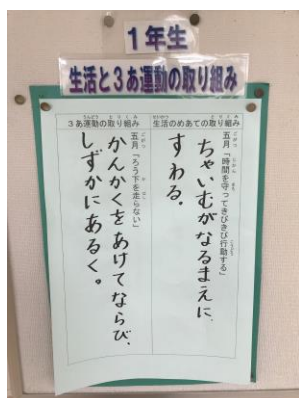 1年生
生活と3あ運動の取り組み
生活のめあての取り組み
五月「時間を守ってきびきび行動する」
ちゃいむがなるまえに、
すわる。
3あ運動の取り組み
五月「ろう下を走らない」
かんかくをあけてならび、
しずかにあるく。